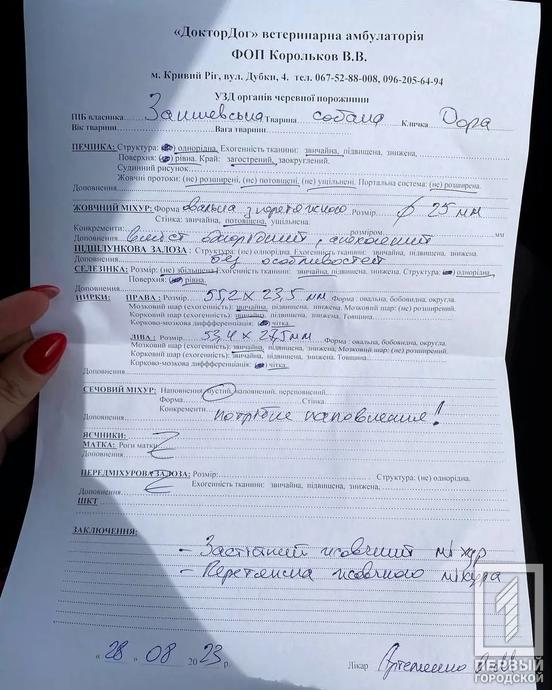 «ДокторДог» ветеринарна амбулаторія
ФОП Корольков В.В.
м. Кривий Ріг, вул. Дубки, 4. тел. 067-52-88-008, 096-205-64-94
УЗД органів черевної порожнини
ПІБ власника Тварина собака Кличка Дора
Вік тварини Вага тварини
ПЕЧІНКА: Структура: однорідна, Ехогенність тканини: звичайна, підвищена, знижена,
Поверхня: рівна. Край: загострений, заокруглений.
Судинний рисунок
Жовчні протоки: (не) розширені, (не) потовщені, (не) ущільнені. Портальна система: (не) розширена.
Доповнення
ЖОВЧНИЙ МІХУР: Форма овальна з перетяжкою Розмір 25 мм
Стінка: звичайна, потовщена, ущільнена.
Конкременти: розміром мм
Доповнення вміст однорідний, анехогенний
ПІДШЛУНКОВА ЗАЛОЗА: Структура: (не) однорідна. Ехогенність тканини: звичайна, підвищена, знижена.
Доповнення без особливостей
СЕЛЕЗІНКА: Розмір: (не) збільшена Ехогенність тканини: звичайна, підвищена, знижена. Структура: однорідна,
Поверхня: рівна.
Доповнення
НИРКИ: ПРАВА: Розмір 55,2 х 23,5 мм Форма: овальна, бобовидна, округла.
Мозковий шар (ехогенність): звичайна, підвищена, знижена. Мозковий шар: (не) розширений.
Корковий шар (ехогенність): звичайна, підвищена, знижена. Товщина
Корково-мозкова диференціація: чітка.
ЛІВА: Розмір 53,4 х 27,5 мм Форма: овальна, бобовидна, округла.
Мозковий шар (ехогенність): звичайна, підвищена, знижена. Мозковий шар: (не) розширений.
Корковий шар (ехогенність): звичайна, підвищена, знижена. Товщина
Корково-мозкова диференціація: чітка.
Доповнення
СЕЧОВИЙ МІХУР: Наповнення: пустий, наповнений, переповнений.
Форма Стінка
Конкременти
Доповнення потрібне наповнення!
ЯЄЧНИКИ:
МАТКА: Роги матки:
Доповнення
ПЕРЕДМІХУРОВА ЗАЛОЗА: Розмір: Структура: (не) однорідна.
Ехогенність тканини: звичайна, підвищена, знижена,
Доповнення
ШКТ
ЗАКЛЮЧЕННЯ:
- Застійний жовчний міхур
- Перетяжка жовчного міхура
« 28 » 08 2023 р. Лікар
1
ПЕРВЫЙ
ГОРОДСКОЙ